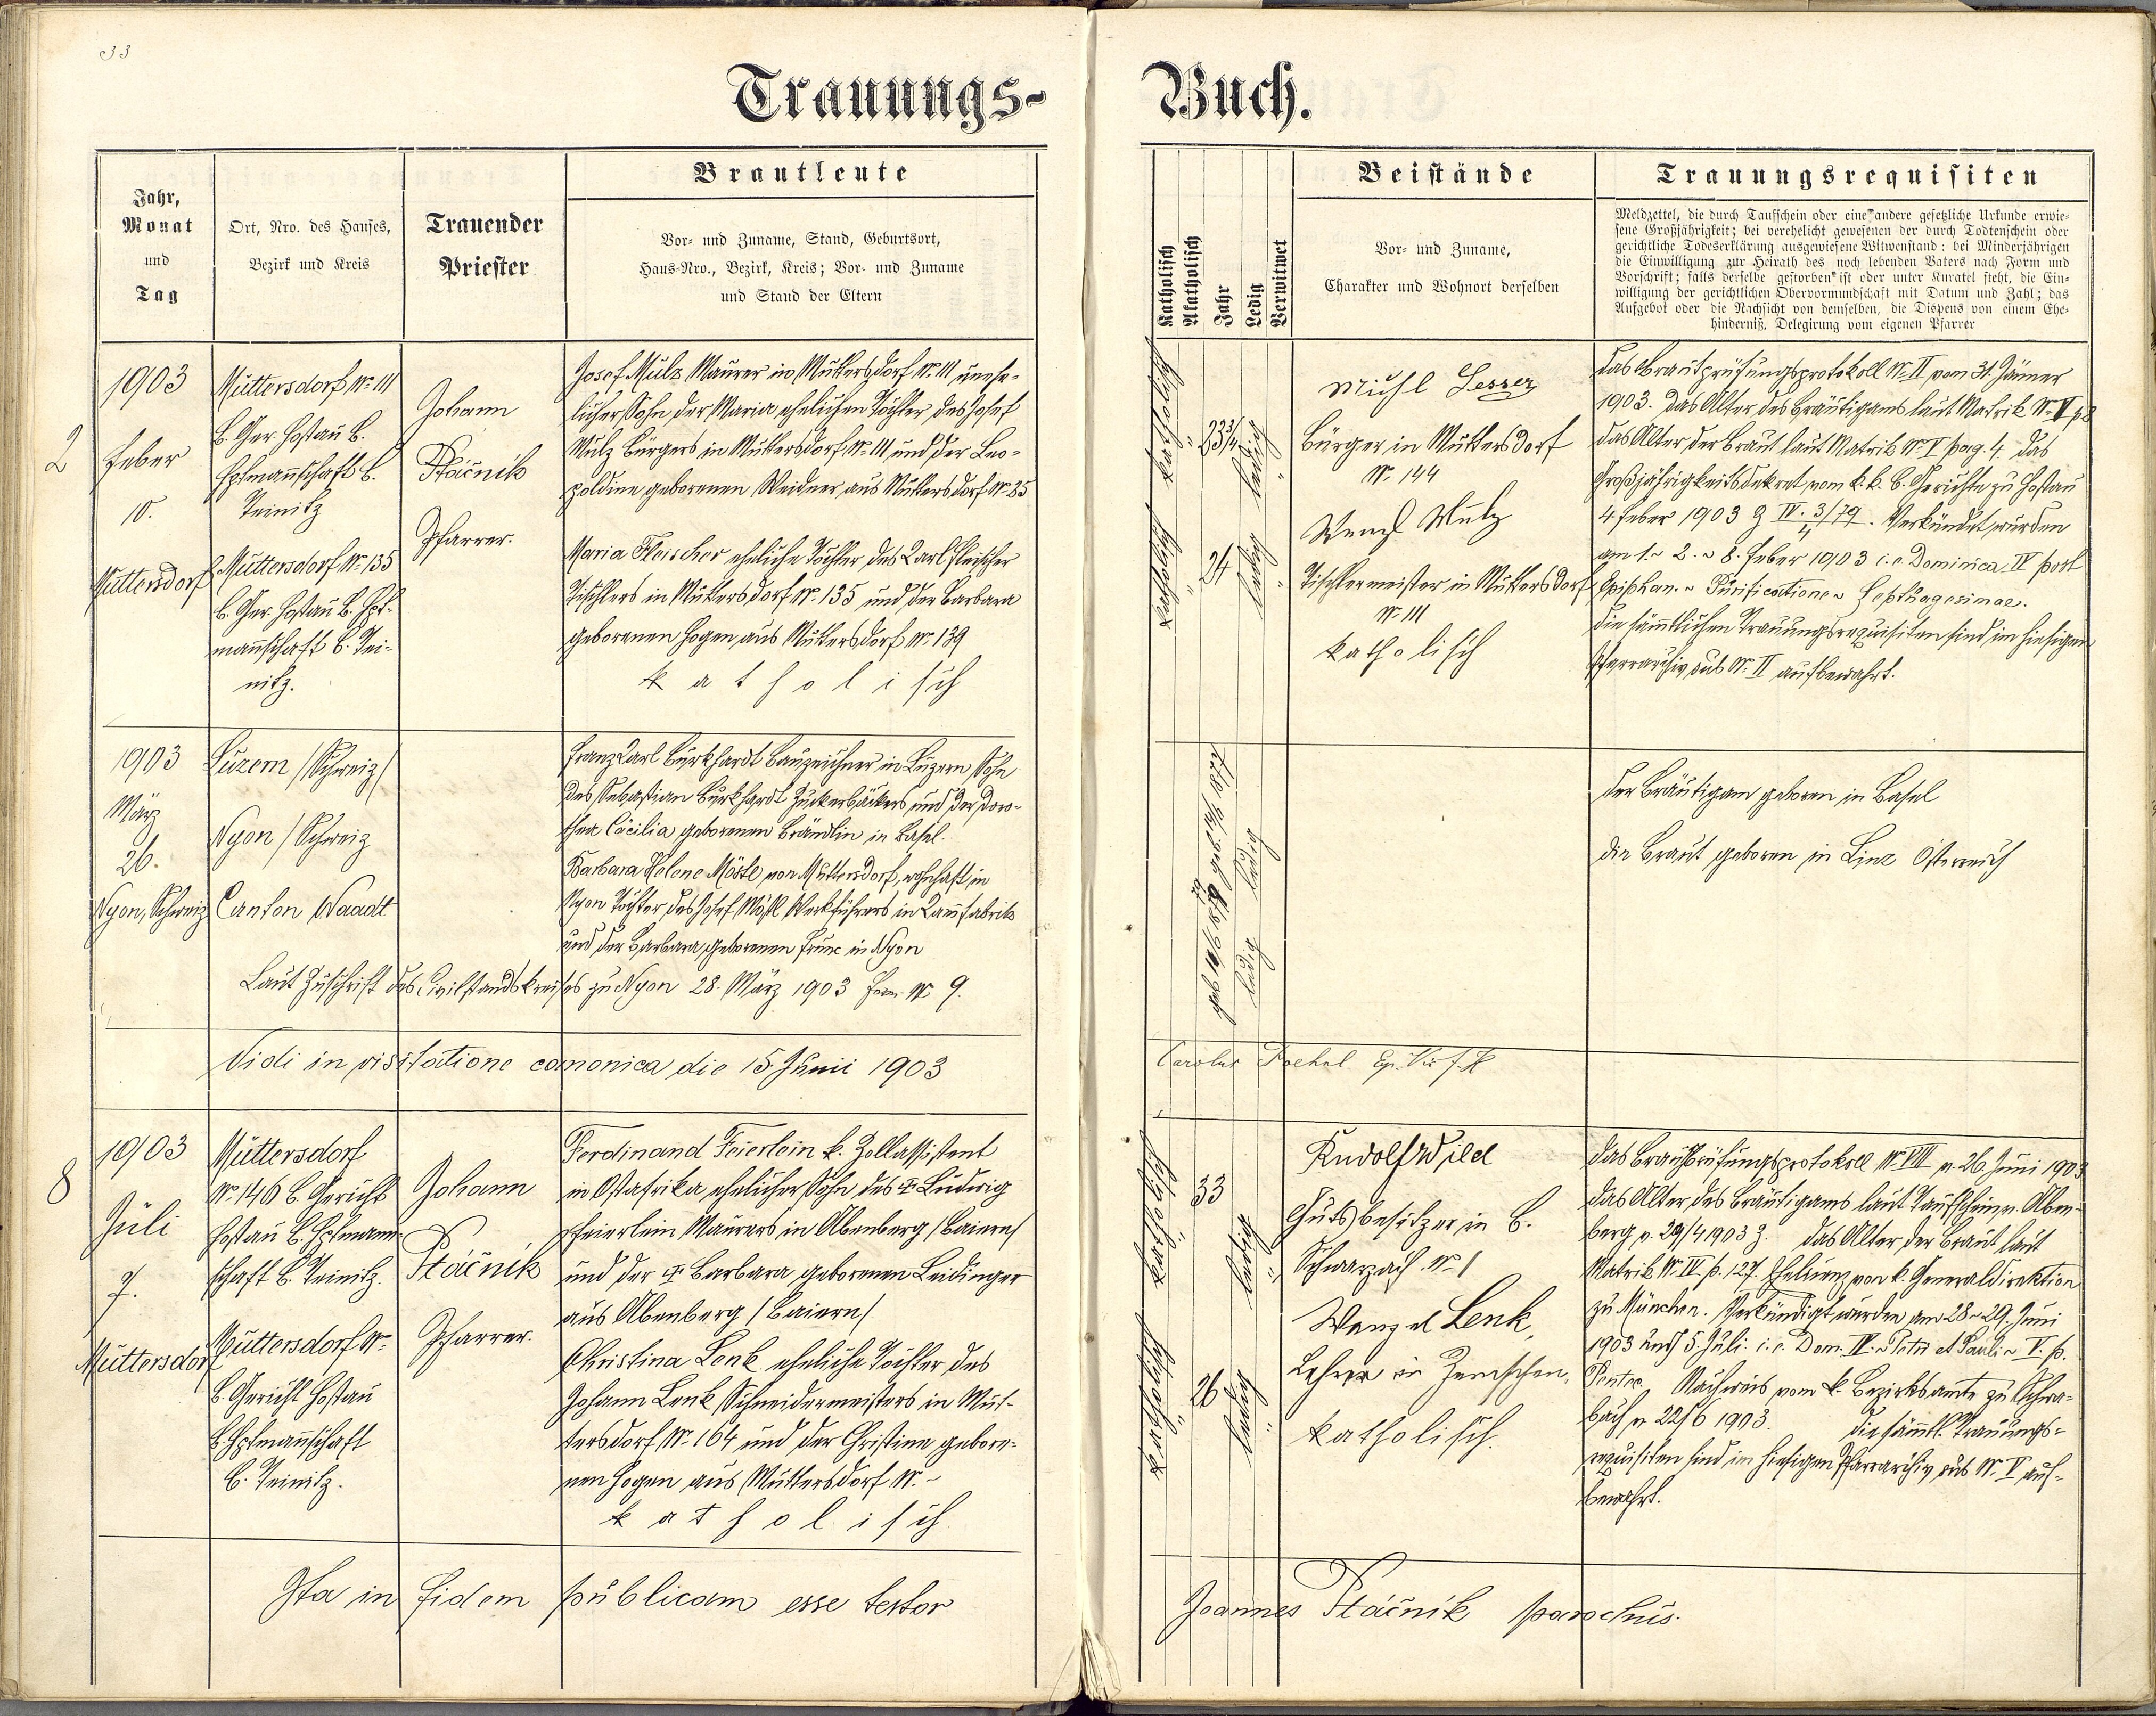 33
Trauungs-
Jahr,
Monat
und
Tag
Ort, Nro. des Hauses,
Bezirk und Kreis
Trauender
Priester
Brautleute
Vor- und Zuname, Stand, Geburtsort,
Haus-Nro., Bezirk, Kreis; Vor- und Zuname
und Stand der Eltern
2
1903
Feber
10.
Muttersdorf
Muttersdorf Nr. 111
b. Ger. Hostau b.
Hptmannschaft b.
Teinitz
Muttersdorf Nr. 135
b. Ger. Hostau b. Hpt-
mannschaft b. Tei-
nitz.
Johann
Ptáčník
Pfarrer.
Josef Mulz Maurer in Muttersdorf Nr. 111 unehe-
licher Sohn der Maria ehelichen Tochter des Josef
Mulz Bürgers in Muttersdorf Nr. 111 und der Leo-
poldine geborenen Weidner aus Muttersdorf Nr. 25
Maria Fleischer eheliche Tochter des Karl Fleischer
Tischlers in Muttersdorf Nr. 135 und der Barbara
geborenen Hogen aus Muttersdorf Nr. 139
katholisch
1903
März
26.
Nyon, Schweiz
Luzern /Schweiz/
Nyon /Schweiz
Canton Waadt
Franz Carl Burkhardt Bauzeichner in Luzern Sohn
des Sebastian Burkhardt Zuckerbäckers und der Doro-
thea Cäcilia geborenen Brändlin in Basel.
Barbara Helene Möstl von Muttersdorf, wohnhaft in
Nyon Tochter des Josef Möstl Werkführers in Kammfabrik
und der Barbara geborenen in Nyon
Laut Zuschrift des Civilstandskreises zu Nyon 28. März 1903 Form. Nr. 9.
Vidi in visitatione canonica die 15. Junii 1903
8
1903
Juli
7.
Muttersdorf
Muttersdorf
Nr. 146 b. Gericht
Hostau b. Hptmann-
schaft b. Teinitz.
Muttersdorf Nr.
b. Gericht Hostau
b. Hptmannschaft
b. Teinitz.
Johann
Ptáčník
Pfarrer.
Ferdinand Feierlein k. Zollassistent
in Ostafrika ehelicher Sohn des † Ludwig
Feierlein Maurers in Abenberg /Baiern/
und der † Barbara geborenen Leidinger
aus Abenberg /Baiern/
Christina Lenk eheliche Tochter des
Johann Lenk Schneidermeisters in Mut-
tersdorf Nr. 164 und der Christine gebore-
nen Hogen aus Muttersdorf Nr. -
katholisch
Ita in fidem publicam esse testor
Buch.
Katholisch
Akatholisch
Jahr
Ledig
Verwitwet
Beistände
Vor- und Zuname,
Charakter und Wohnort derselben
Trauungsrequisiten
Meldzettel, die durch Taufschein oder eine andere gesetzliche Urkunde erwie-
sene Großjährigkeit; bei verehelicht gewesenen der durch Todtenschein oder
gerichtliche Todeserklärung ausgewiesene Witwenstand; bei Minderjährigen
die Einwilligung zur Heirath des noch lebenden Vaters nach Form und
Vorschrift; falls derselbe gestorben ist oder unter Kuratel steht, die Ein-
willigung der gerichtlichen Obervormundschaft mit Datum und Zahl; das
Aufgebot oder die Nachsicht von demselben, die Dispens von einem Ehe-
hinderniß, Delegirung vom eigenen Pfarrer
katholisch
23 3/4
ledig
katholisch
24
ledig
Michl
Bürger in Muttersdorf
Nr. 144
Wenzl Mulz
Tischlermeister in Muttersdorf
Nr. 111
katholisch
Das Brautprüfungsprotokoll Nr. II vom 31. Jänner
1903. Das Alter des Bräutigams laut Matrik Nr. V p.
Das Alter der Braut laut Matrik Nr. V pag. 4. Das
Großjährigkeitsdekret vom k. k. b. Gerichte zu Hostau
4 Feber 1903 Z IV. 3/79. Verkündet wurden
am 1. 2. 8. Feber 1903 i. e. Dominica IV post
Epiphan. Purificatione Septuagesimae.
Die sämmtlichen Trauungsrequisiten sind im hiesigen
Pfarrarchiv sub Nr. II aufbewahrt.
ledig
ledig
Der Bräutigam geboren in Basel
Die Braut geboren in Linz Österreich
Carolus
katholisch
33
ledig
katholisch
26
ledig
Rudolf Wild
Gutsbesitzer in b.
Schwarzach Nr. 1
Wenzel Lenk,
Lehrer in Zemschen,
katholisch.
Das Brautprüfungsprotokoll Nr. VIII v. 26 Juni 1903
Das Alter des Bräutigams laut Taufschein v. Aben-
berg v. 29/4 1903 Z. Das Alter der Braut laut
Matrik Nr. IV p. 127. von k. Generaldirektion
zu München. Verkündigt wurden am 28 29. Juni
1903 und 5 Juli i. e. Dom. IV. Petri et Pauli V. p.
Pentec. Nachweis vom k. Bezirksamte zu Schwa-
bach v 22/6 1903. Die sämmtl. Trauungs-
requisiten sind im hiesigen Pfarrarchiv sub Nr. V auf-
bewahrt.
Joannes Ptáčník parochus.